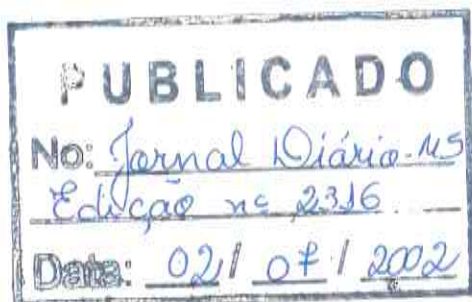 PUBLICADO
No: Jornal Diário-MS
Edição nº 2316
Data: 02 / 07 / 2002